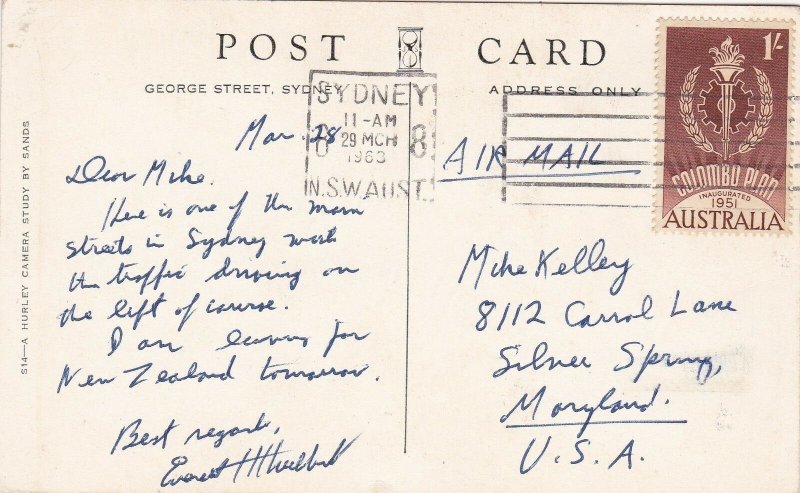 POST CARD
GEORGE STREET, SYDNEY
ADDRESS ONLY
S14—A HURLEY CAMERA STUDY BY SANDS
SYDNEY
11-AM
29 MCH
1963
8
N.S.W AUST.
1/-
COLOMBO PLAN
INAUGURATED
1951
AUSTRALIA
Mar. 28
Dear Mike.
Here is one of the main
streets in Sydney with
the traffic driving on
the left of course.
I am leaving for
New Zealand tomorrow.
Best regards,
Everett
AIR MAIL
Mike Kelley
8112 Carrol Lane
Silver Spring,
Maryland.
U.S.A.